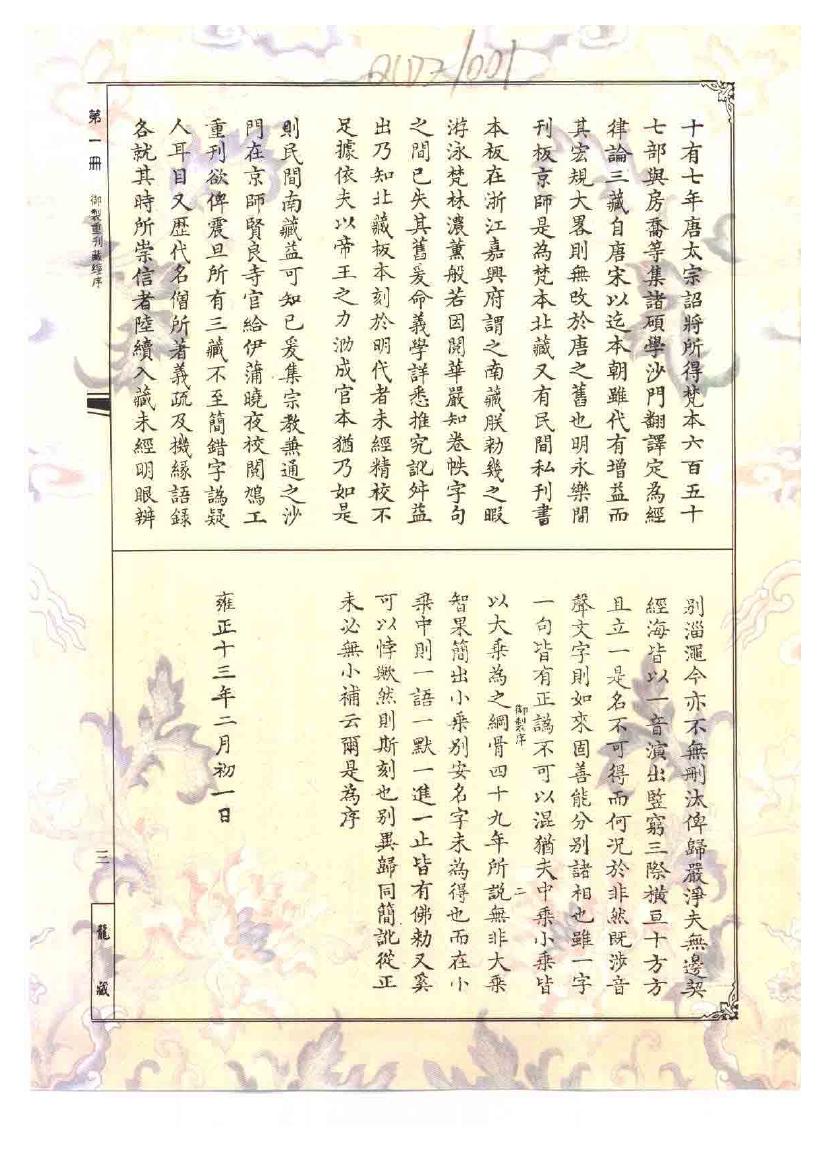 QLDZ/001
十有七年唐太宗詔將所得梵本六百五十
七部與房喬等集諸碩學沙門翻譯定為經
律論三藏自唐宋以迄本朝雖代有增益而
其宏規大畧則無改於唐之舊也明永樂間
刊板京師是為梵本北藏又有民間私刊書
本板在浙江嘉興府謂之南藏朕勅幾之暇
游泳梵林濃薰般若因閱華嚴知卷帙字句
之間已失其舊爰命義學詳悉推究訛舛益
出乃知北藏板本刻於明代者未經精校不
足據依夫以帝王之力泐成官本猶乃如是
則民間南藏益可知已爰集宗教兼通之沙
門在京師賢良寺官給伊蒲曉夜校閱鳩工
重刊欲俾震旦所有三藏不至簡錯字譌疑
人耳目又歷代名僧所著義疏及機緣語錄
各就其時所崇信者陸續入藏未經明眼辨
別淄澠今亦不無刪汰俾歸嚴淨夫無邊契
經海皆以一音演出豎窮三際橫亘十方方
且立一是名不可得而何況於非然既涉音
聲文字則如來固善能分別諸相也雖一字
一句皆有正譌不可以混猶夫中乘小乘皆
御製序 二
以大乘為之綱骨四十九年所説無非大乘
智果簡出小乘別安名字未為得也而在小
乘中則一語一默一進一止皆有佛勅又奚
可以悖歟然則斯刻也別異歸同簡訛從正
未必無小補云爾是為序
雍正十三年二月初一日
第一冊 御製重刊藏經序
三
龍藏